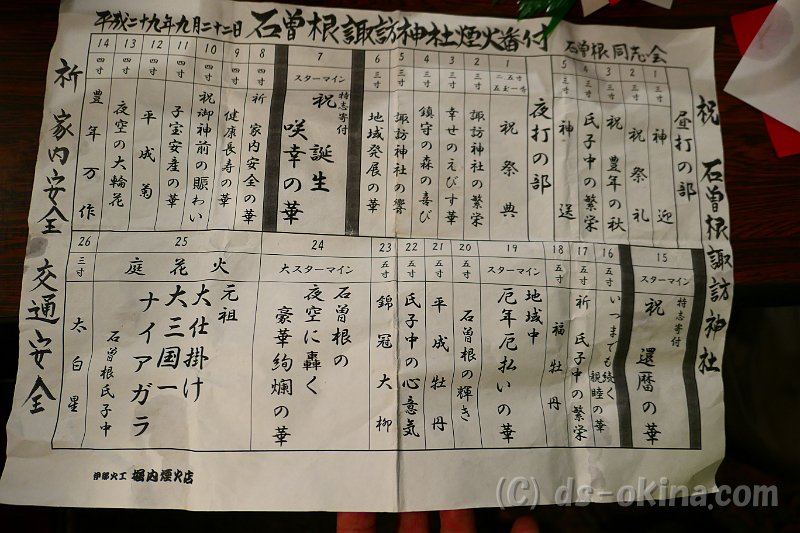 平成二十九年九月二十二日 石曽根諏訪神社煙火番付 石曽根同志会
祝 石曽根諏訪神社
昼打の部
1 三寸 神迎
2 三寸 祝祭礼
3 三寸 祝豊年の秋
4 三寸 氏子中の繁栄
5 三寸 神送
夜打の部
1 二、五寸 五玉一斉 祝祭典
2 三寸 諏訪神社の繁栄
3 三寸 幸せのえびす華
4 三寸 鎮守の森の喜び
5 三寸 諏訪神社の響
6 三寸 地域発展の華
7 スターマイン 特志寄付
祝 誕生
咲幸の華
8 四寸 祈 家内安全の華
9 四寸 健康長寿の華
10 四寸 祝御神前の賑わい
11 四寸 子宝安産の華
12 四寸 平成菊
13 四寸 夜空の大輪花
14 四寸 豊年万作
15 スターマイン 特志寄付
祝 還暦の華
16 五寸 いつまでも続く
親睦の華
17 五寸 祈 氏子中の繁栄
18 五寸 福牡丹
19 スターマイン 地域中
厄年厄払いの華
20 五寸 石曽根の輝き
21 五寸 平成牡丹
22 五寸 氏子中の心意気
23 五寸 錦冠大柳
24 大スターマイン 石曽根の
夜空に轟く
豪華絢爛の華
25 庭花火 元祖
大仕掛け
大三国一
ナイアガラ
石曽根氏子中
26 三寸 太白星
祈 家内安全 交通安全
伊那火工 堀内煙火店
(C) ds-okina.com